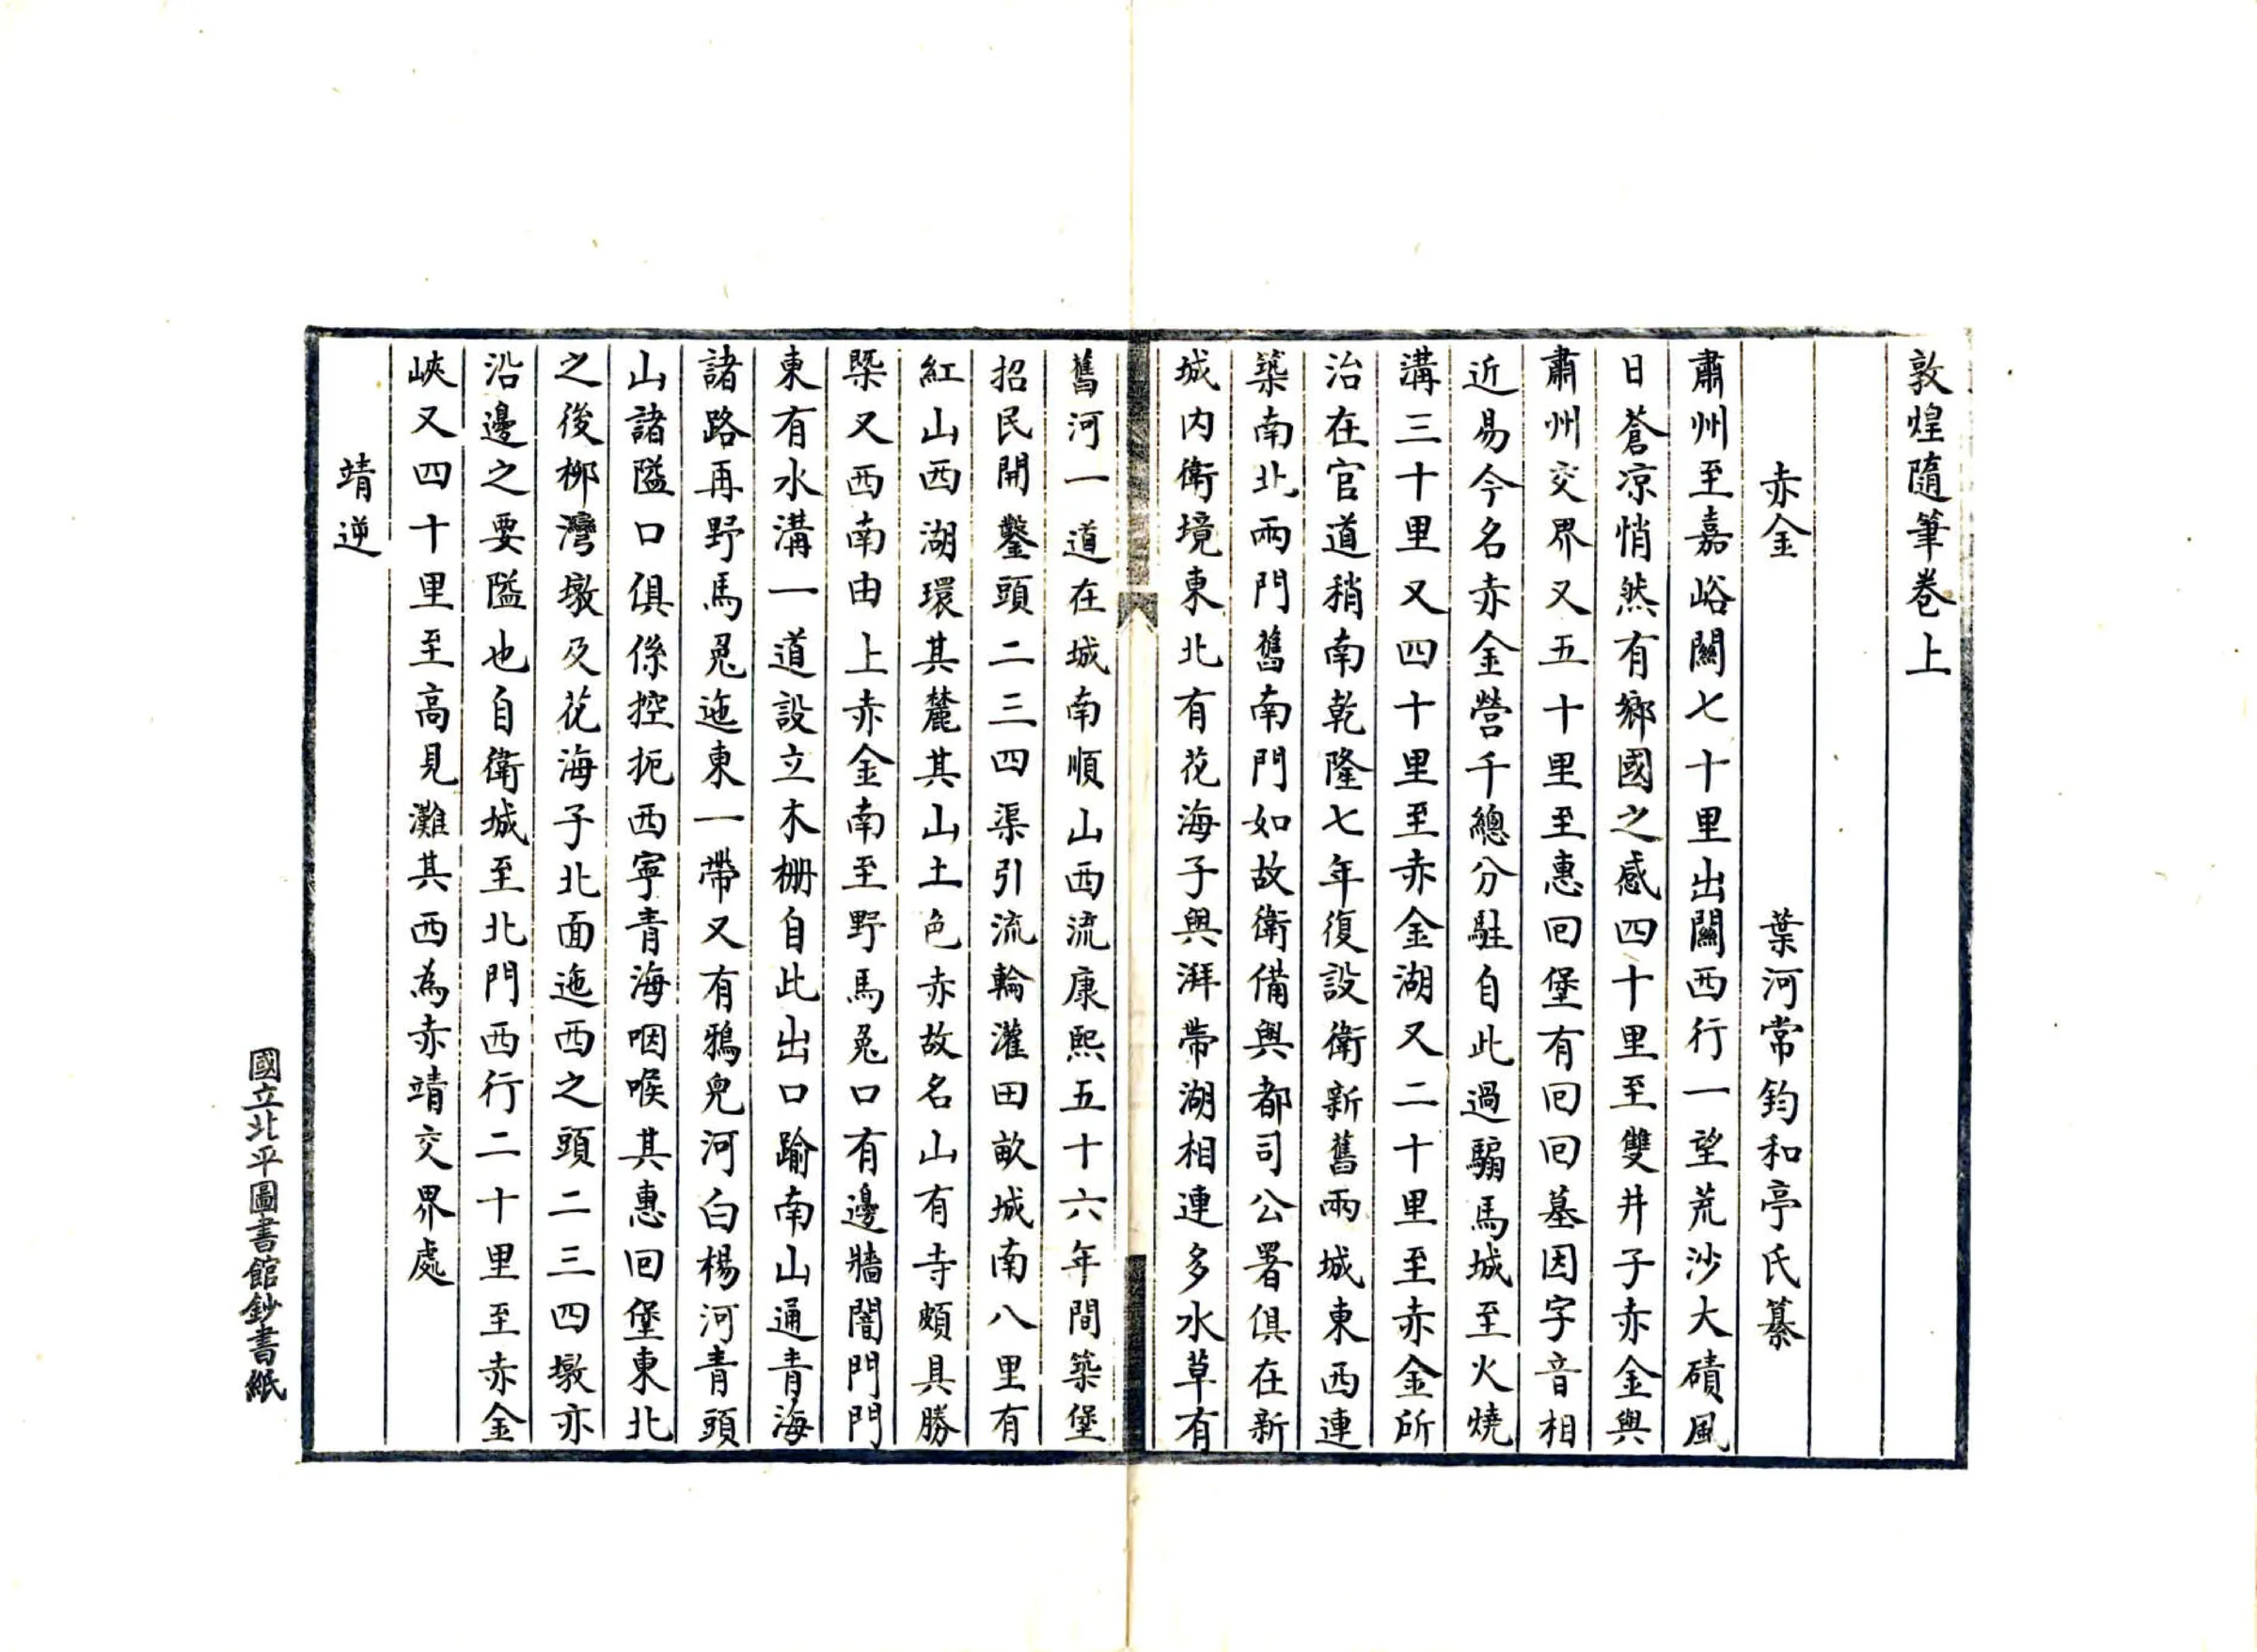 敦煌隨筆卷上
葉河常鈞和亭氏纂
赤金
肅州至嘉峪關七十里出關西行一望荒沙大磧風
日蒼凉悄然有鄉國之感四十里至雙井子赤金與
肅州交界又五十里至惠回堡有回回墓因字音相
近易今名赤金營千總分駐自此過騸馬城至火燒
溝三十里又四十里至赤金湖又二十里至赤金所
治在官道稍南乾隆七年復設衛新舊兩城東西連
築南北兩門舊南門如故衛備與都司公署俱在新
城內衛境東北有花海子與湃帶湖相連多水草有
舊河一道在城南順山西流康熙五十六年間築堡
招民開鑿頭二三四渠引流輪灌田畝城南八里有
紅山西湖環其麓其山土色赤故名山有寺頗具勝
槩又西南由上赤金南至野馬兔口有邊牆闇門門
東有水溝一道設立木栅自此出口踰南山通青海
諸路再野馬兔迤東一帶又有鴉兒河白楊河青頭
山諸隘口俱係控扼西寧青海咽喉其惠回堡東北
之後柳灣墩及花海子北面迤西之頭二三四墩亦
沿邊之要隘也自衛城至北門西行二十里至赤金
峽又四十里至高見灘其西為赤靖交界處
靖逆
國立北平圖書館鈔書紙